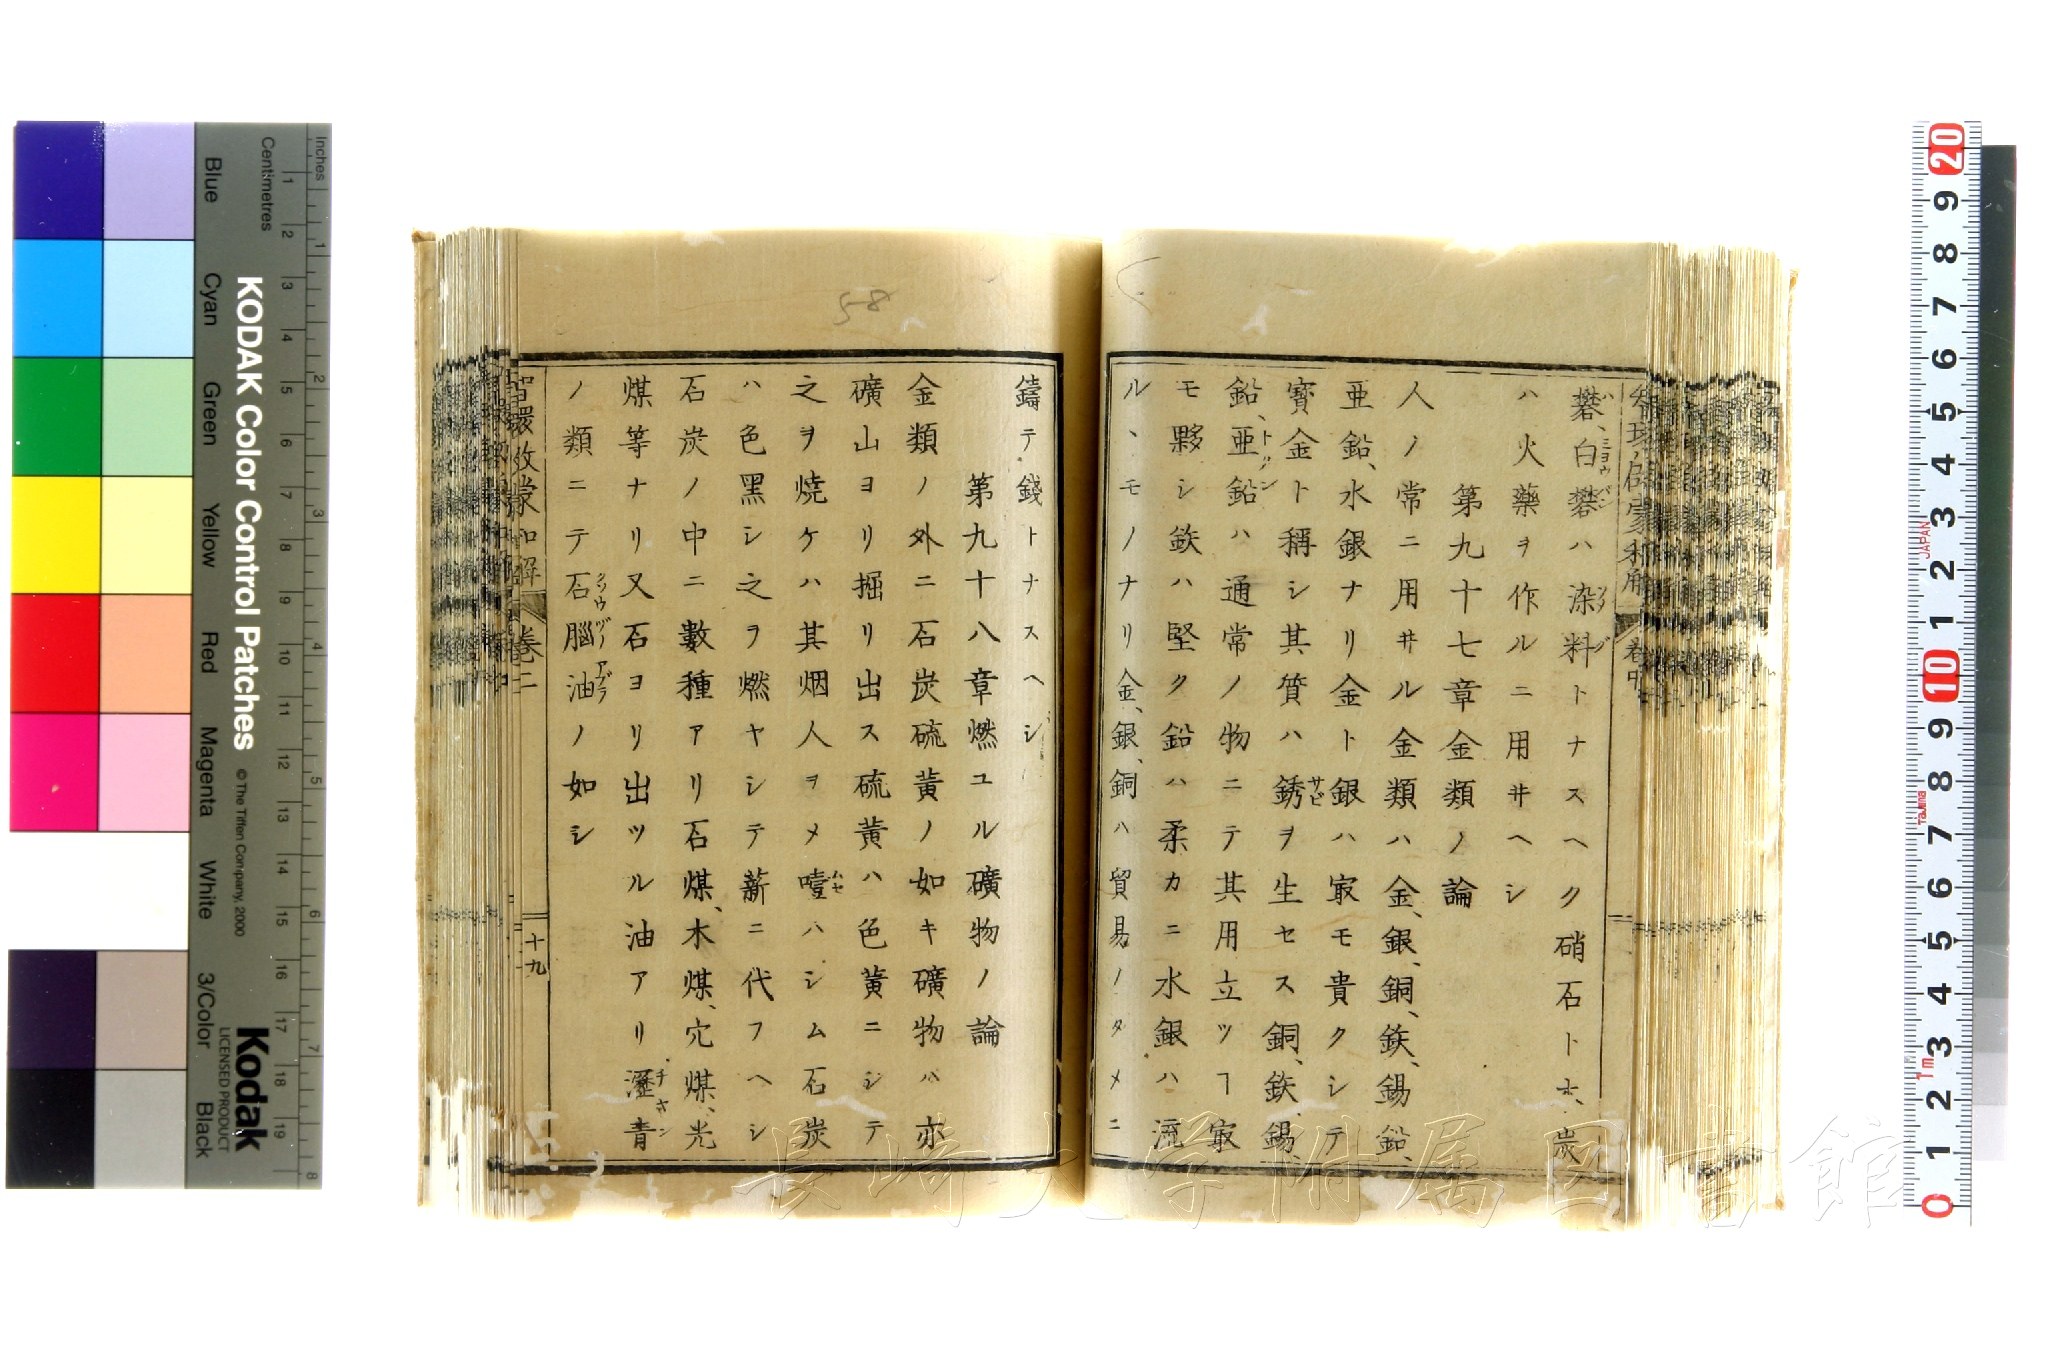 礬、白礬ハ染料トナスヘク硝石ト木、炭
ハ火藥ヲ作ルニ用ヰヘシ
第九十七章金類ノ論
人ノ常ニ用ヰル金類ハ金、銀、銅、鉄、錫、鉛、
亜鉛、水銀ナリ金ト銀ハ㝡モ貴クシテ
寳金ト稱シ其質ハ銹ヲ生セス銅、鉄、錫、
鉛、亜鉛ハ通常ノ物ニテ其用立ツヿ㝡
モ夥シ鉄ハ堅ク鉛ハ柔カニ水銀ハ流
ルヽモノナリ金、銀、銅ハ貿易ノタメニ
鑄テ錢トナスヘシ
第九十八章燃ユル礦物ノ論
金類ノ外ニ石炭硫黄ノ如キ礦物ハ亦
礦山ヨリ掘リ出ス硫黄ハ色黄ニシテ
之ヲ燒ケハ其烟人ヲメ噎ハシム石炭
ハ色黑シ之ヲ燃ヤシテ薪ニ代フヘシ
石炭ノ中ニ數種アリ石煤、木煤、穴煤、光
煤等ナリ又石ヨリ出ツル油アリ瀝青
ノ類ニテ石腦油ノ如シ
智環啟蒙和解 巻二
十九
58
長崎大学附属図書館
KODAK Color Control Patches
© The Tiffen Company, 2000
Kodak
LICENSED PRODUCT
Inches
Centimetres
Blue
Cyan
Green
Yellow
Red
Magenta
White
3/Color
Black
JAPAN
Tajima
1m